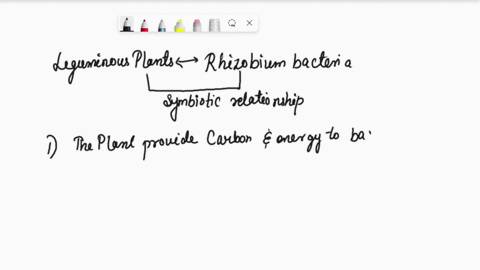 Leguminous Plants ↔ Rhizobium bacteria
Symbiotic relationship
1) The Plant provide Carbon & energy to ba